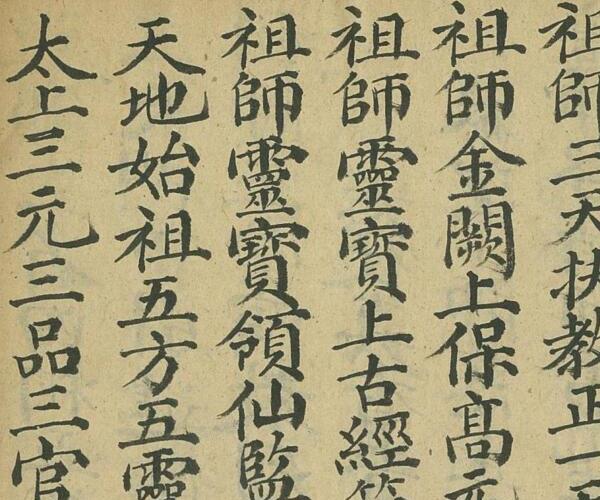 祖師三天扶教正一
祖師金闕上保髙元
祖師靈寶上古經
祖師靈寶領仙監
天地始祖五方五靈
太上三元三品三官